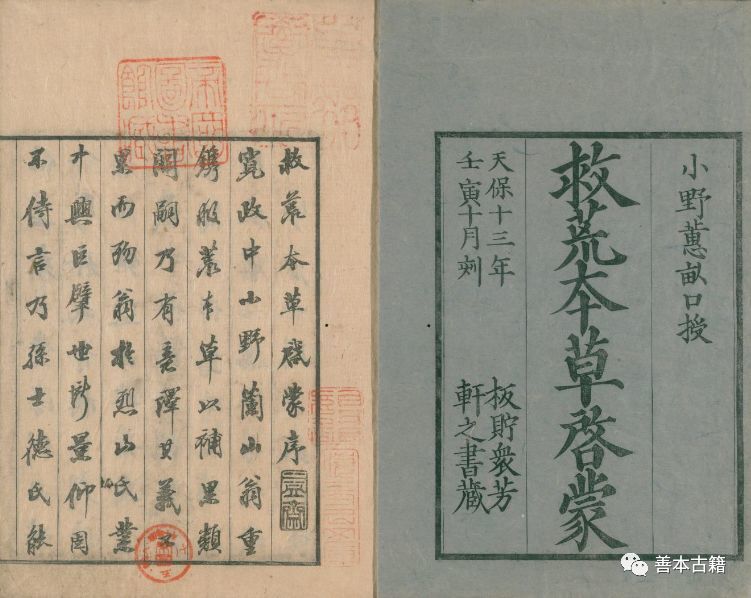 小野蕙畝口授
救荒本草啓蒙
天保十三年
壬寅十月刻
板貯衆芳
軒之書藏
救荒本草啓蒙序
寛政中小野蘭山翁重
鐫荒本草以補類
嗣乃有其義
果而歿翁於烈山氏業
中興巨擘世所仰固
不待言乃孫士德氏能
善本古籍